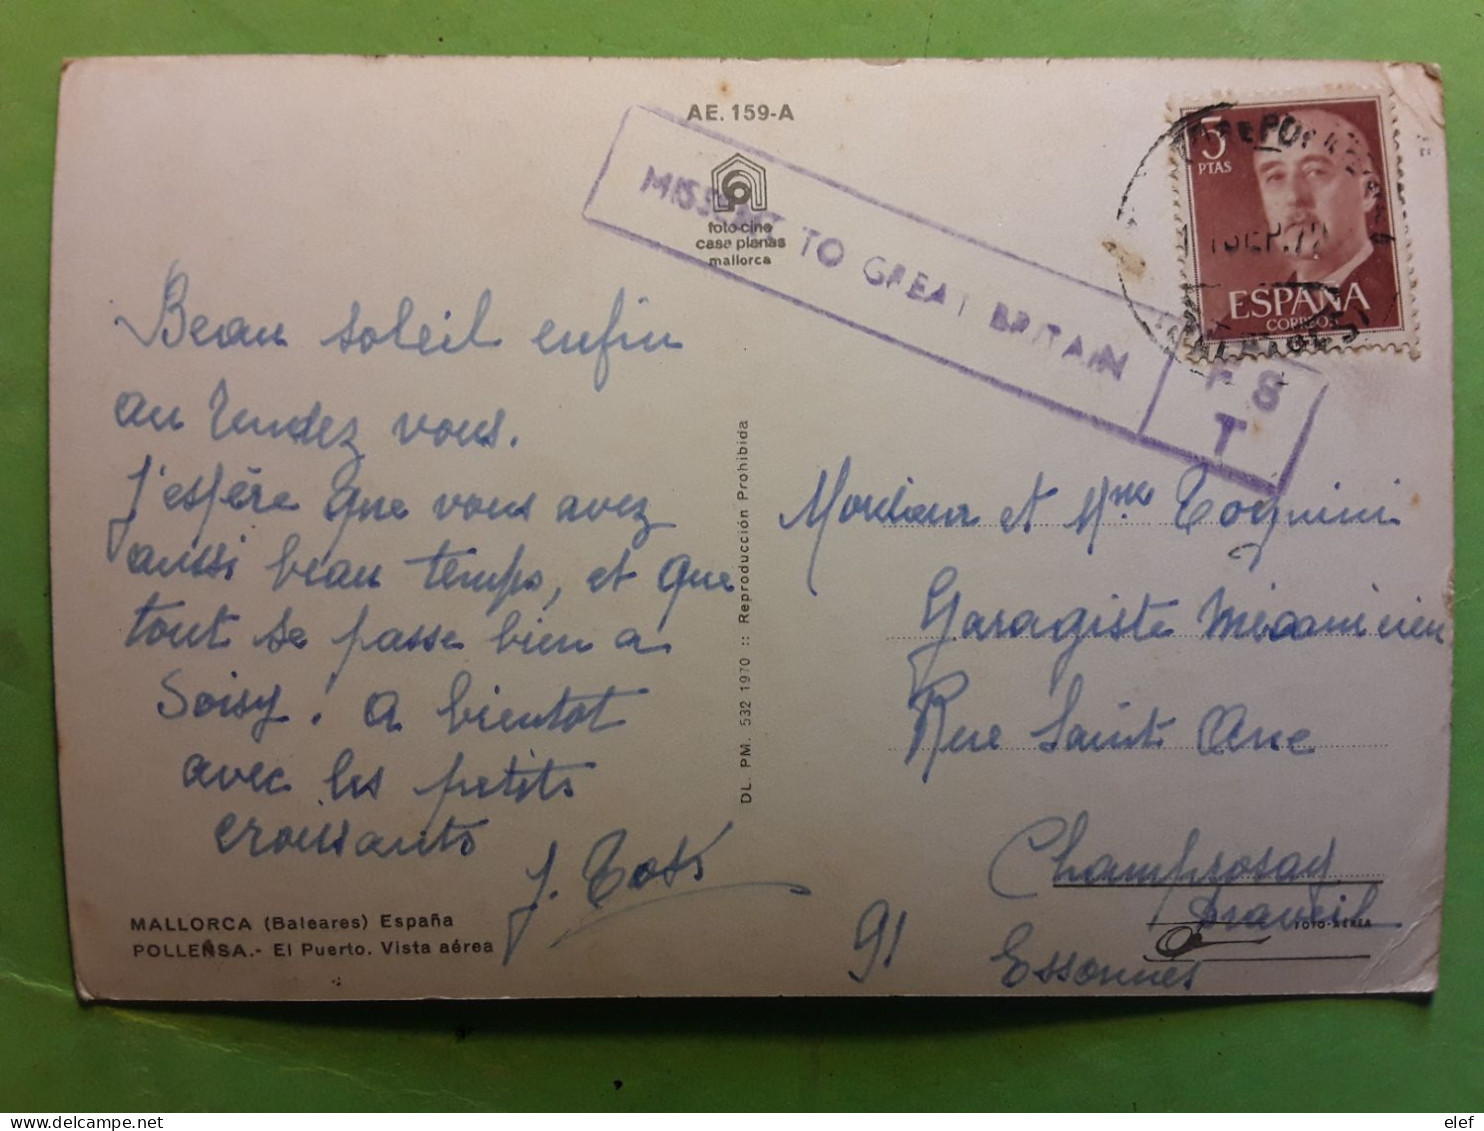 AE. 159-A
foto-cine
casa planas
mallorca
MISSENT TO GREAT BRITAIN
FS
T
5
PTAS
ESPAÑA
CORREOS
Beau soleil enfin
au rendez vous.
J'espère que vous avez
aussi beau temps, et que
tout se passe bien a
Soisy. A bientot
avec les petits
croissants
J. Tosi
MALLORCA (Baleares) España
POLLENSA.- El Puerto. Vista aérea
DL. PM. 532 1970 :: Reproducción Prohibida
Monsieur et Mme Tognini
Garagiste Mécanicien
Rue Sainte Anne
Champrosay
Draveil
FOTO-AEREA
91 Essonnes
elef